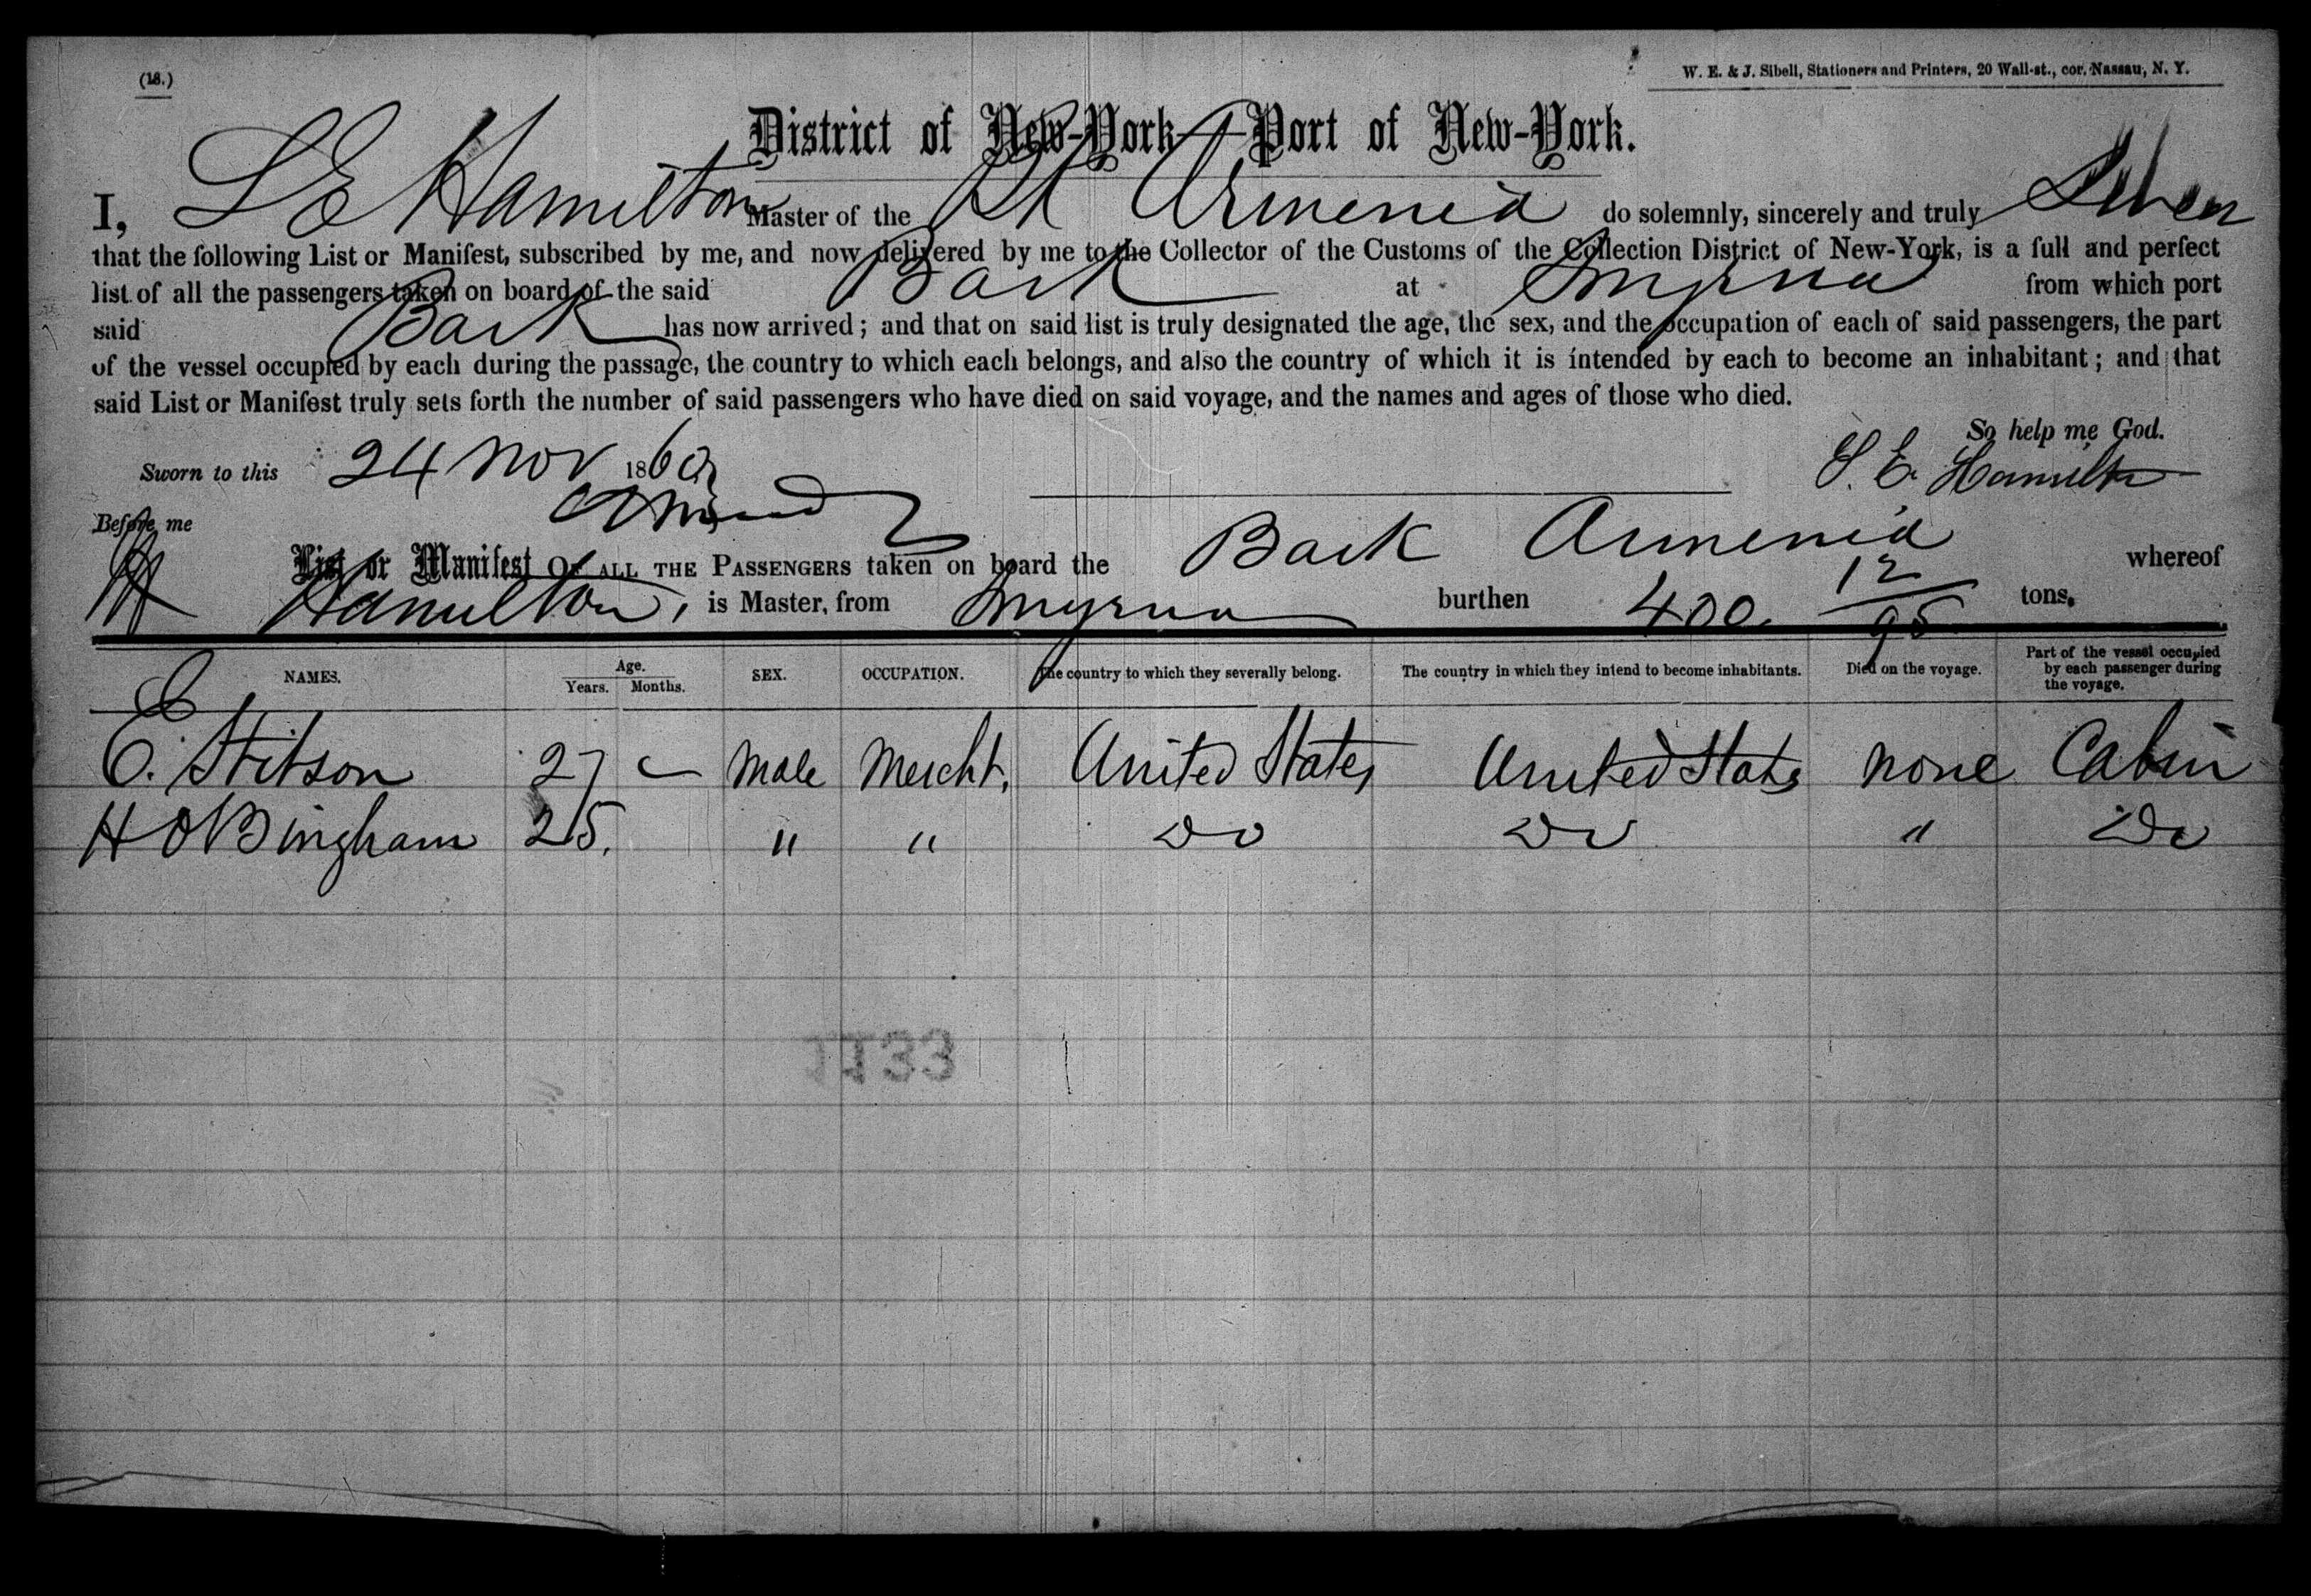 (18.)
W. E. & J. Sibell, Stationers and Printers, 20 Wall-st., cor. Nassau, N. Y.
District of New-York—Port of New-York.
I, L E Hamilton Master of the Bk Armenia do solemnly, sincerely and truly Swear
that the following List or Manifest, subscribed by me, and now delivered by me to the Collector of the Customs of the Collection District of New-York, is a full and perfect
list of all the passengers taken on board of the said Bark at Smyrna from which port
said Bark has now arrived; and that on said list is truly designated the age, the sex, and the occupation of each of said passengers, the part
of the vessel occupied by each during the passage, the country to which each belongs, and also the country of which it is intended by each to become an inhabitant; and that
said List or Manifest truly sets forth the number of said passengers who have died on said voyage, and the names and ages of those who died.
So help me God.
Sworn to this 24 Nov 1860 S. E. Hamilton
Before me
List or Manifest OF ALL THE PASSENGERS taken on board the Bark Armenia whereof
Hamilton, is Master, from Smyrna burthen 400 12/95 tons.
NAMES. Age. Years. Months. SEX. OCCUPATION. The country to which they severally belong. The country in which they intend to become inhabitants. Died on the voyage. Part of the vessel occupied by each passenger during the voyage.
E. Stitson 27 – Male Mercht. United States United States none Cabin
H O Bingham 25. " " Do Do " Do
1133